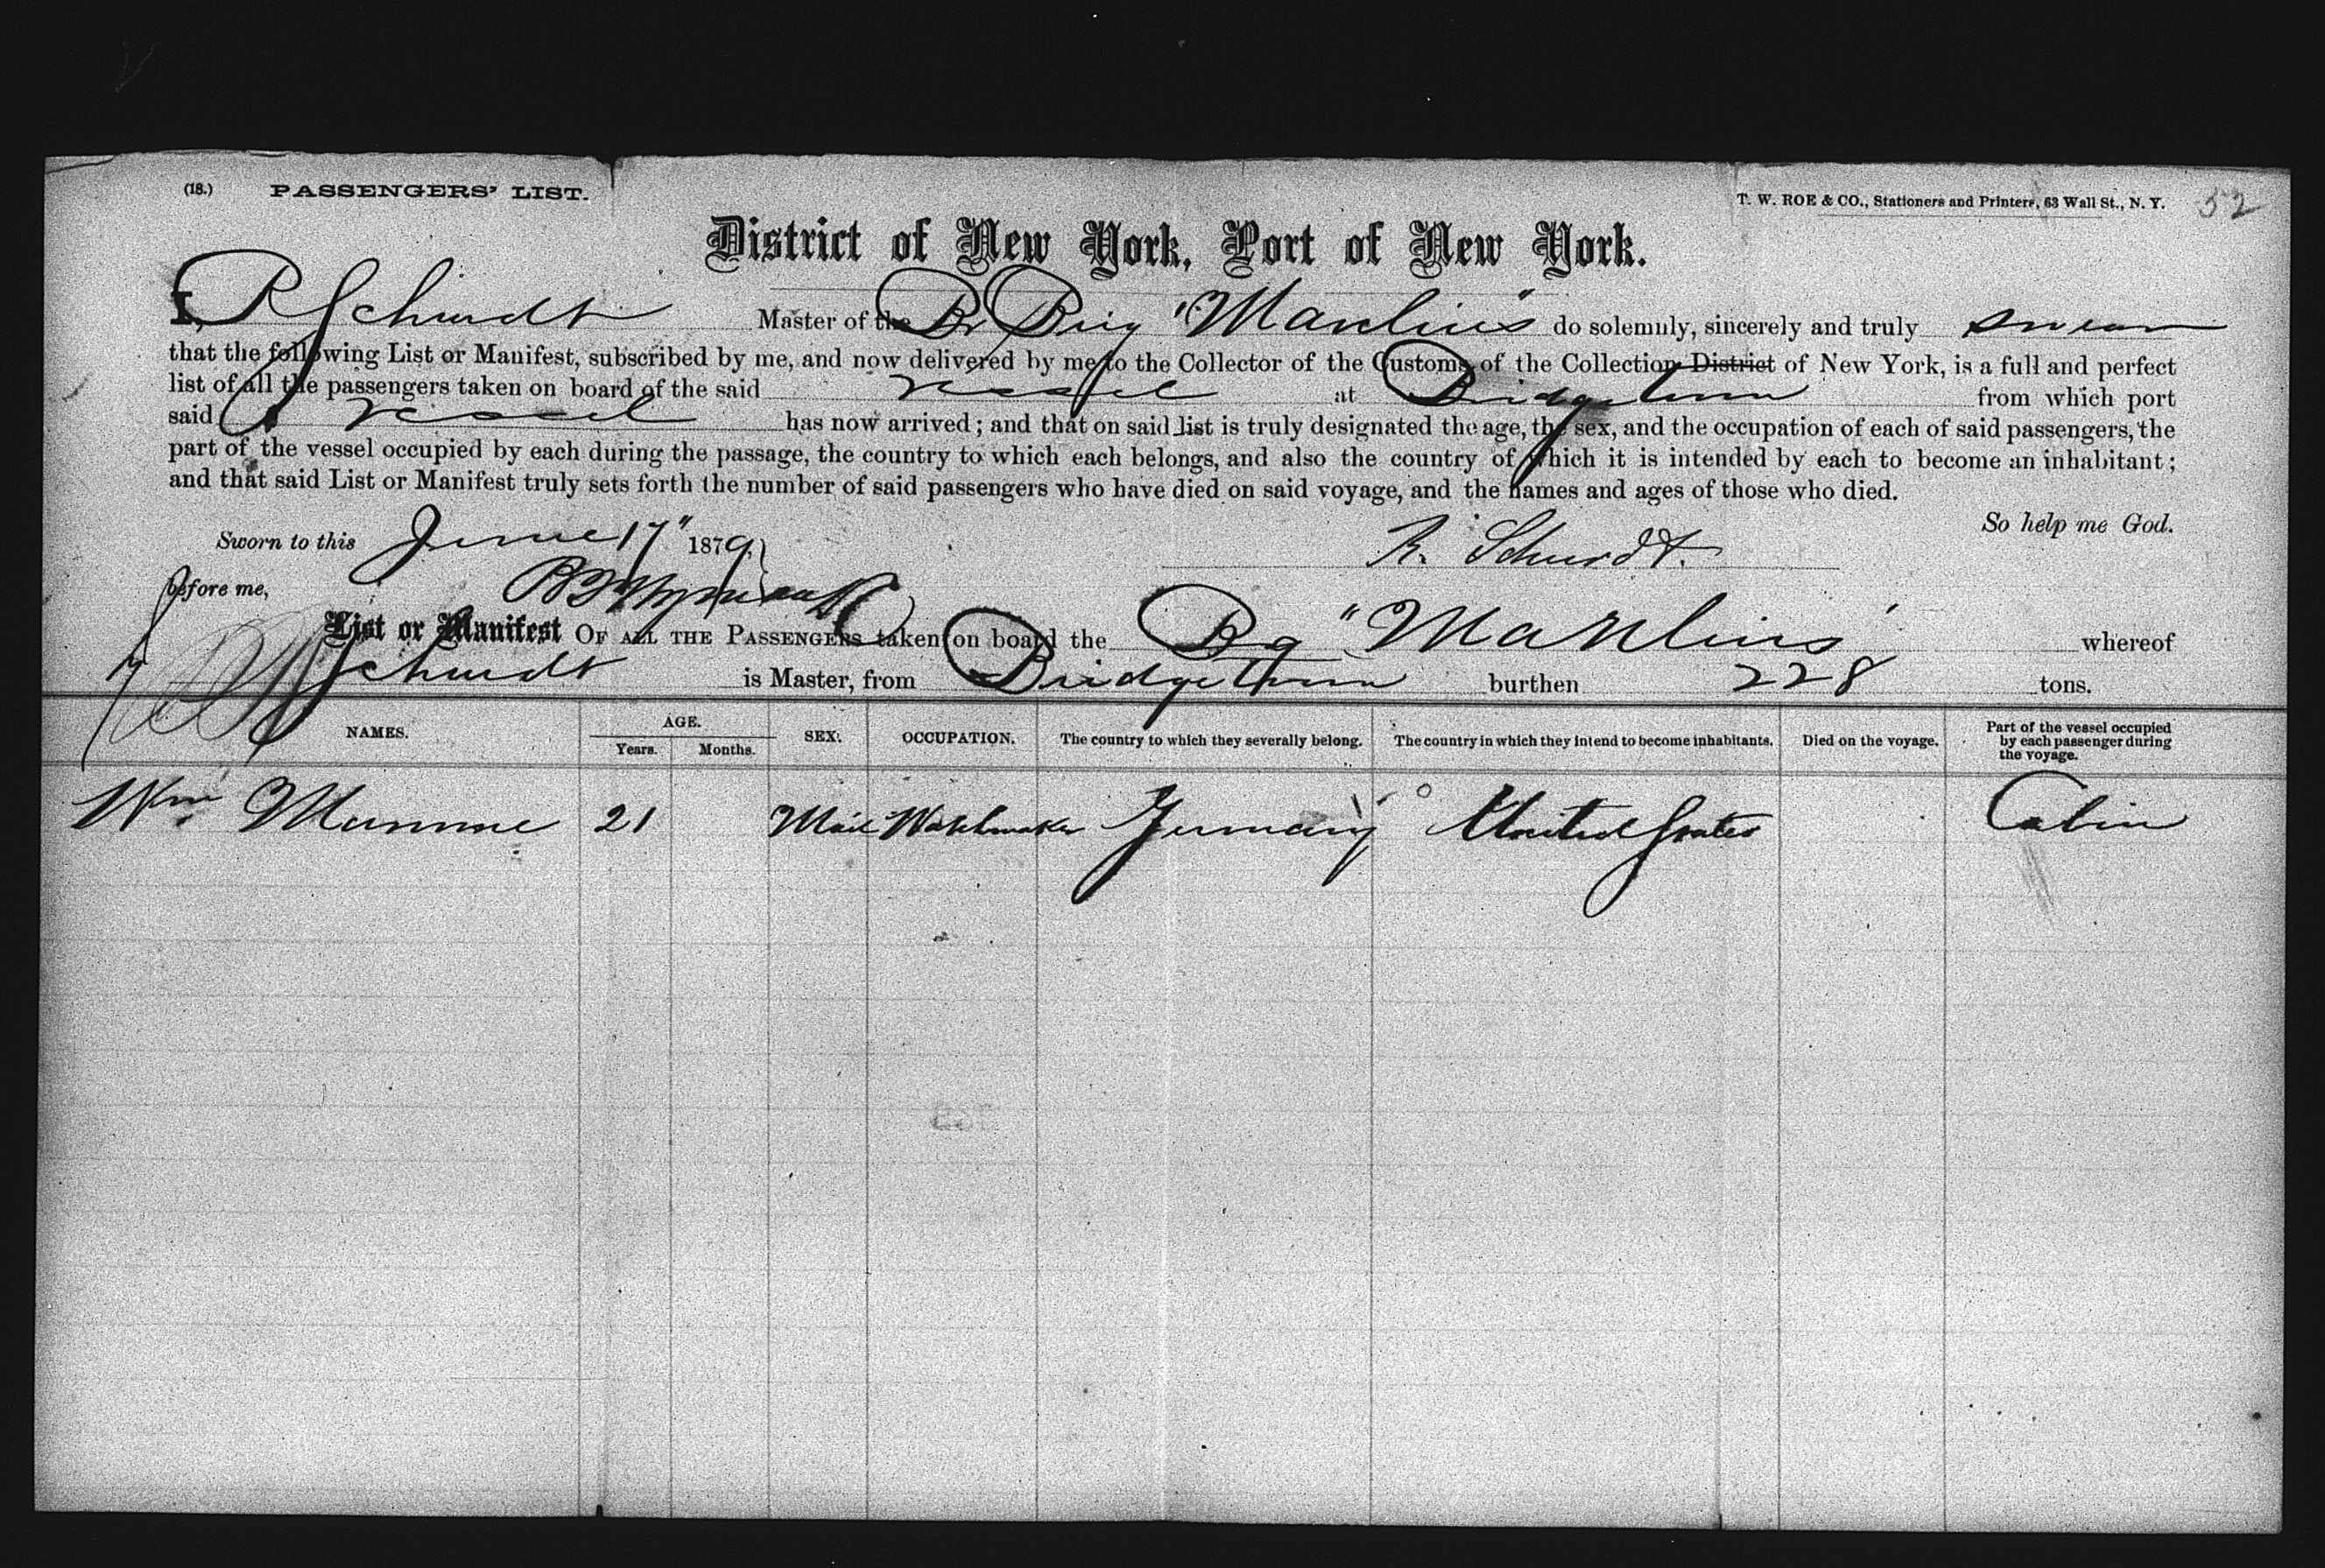 (18.) PASSENGERS' LIST. T. W. ROE & CO., Stationers and Printers, 63 Wall St., N. Y. 52
District of New York, Port of New York.
I, R Schurdt Master of the Br Brig "Manlius" do solemnly, sincerely and truly swear
that the following List or Manifest, subscribed by me, and now delivered by me to the Collector of the Customs of the Collection District of New York, is a full and perfect
list of all the passengers taken on board of the said vessel at Bridgetown from which port
said vessel has now arrived; and that on said list is truly designated the age, the sex, and the occupation of each of said passengers, the
part of the vessel occupied by each during the passage, the country to which each belongs, and also the country of which it is intended by each to become an inhabitant;
and that said List or Manifest truly sets forth the number of said passengers who have died on said voyage, and the names and ages of those who died.
So help me God.
Sworn to this June 17" 1879 R. Schurdt.
before me,
List or Manifest OF ALL THE PASSENGERS taken on board the Bg "Manlius" whereof
Schurdt is Master, from Bridgetown burthen 228 tons.
NAMES. AGE. Years. Months. SEX. OCCUPATION. The country to which they severally belong. The country in which they intend to become inhabitants. Died on the voyage. Part of the vessel occupied by each passenger during the voyage.
Wm Mumme 21 Male Watchmaker Germany United States Cabin